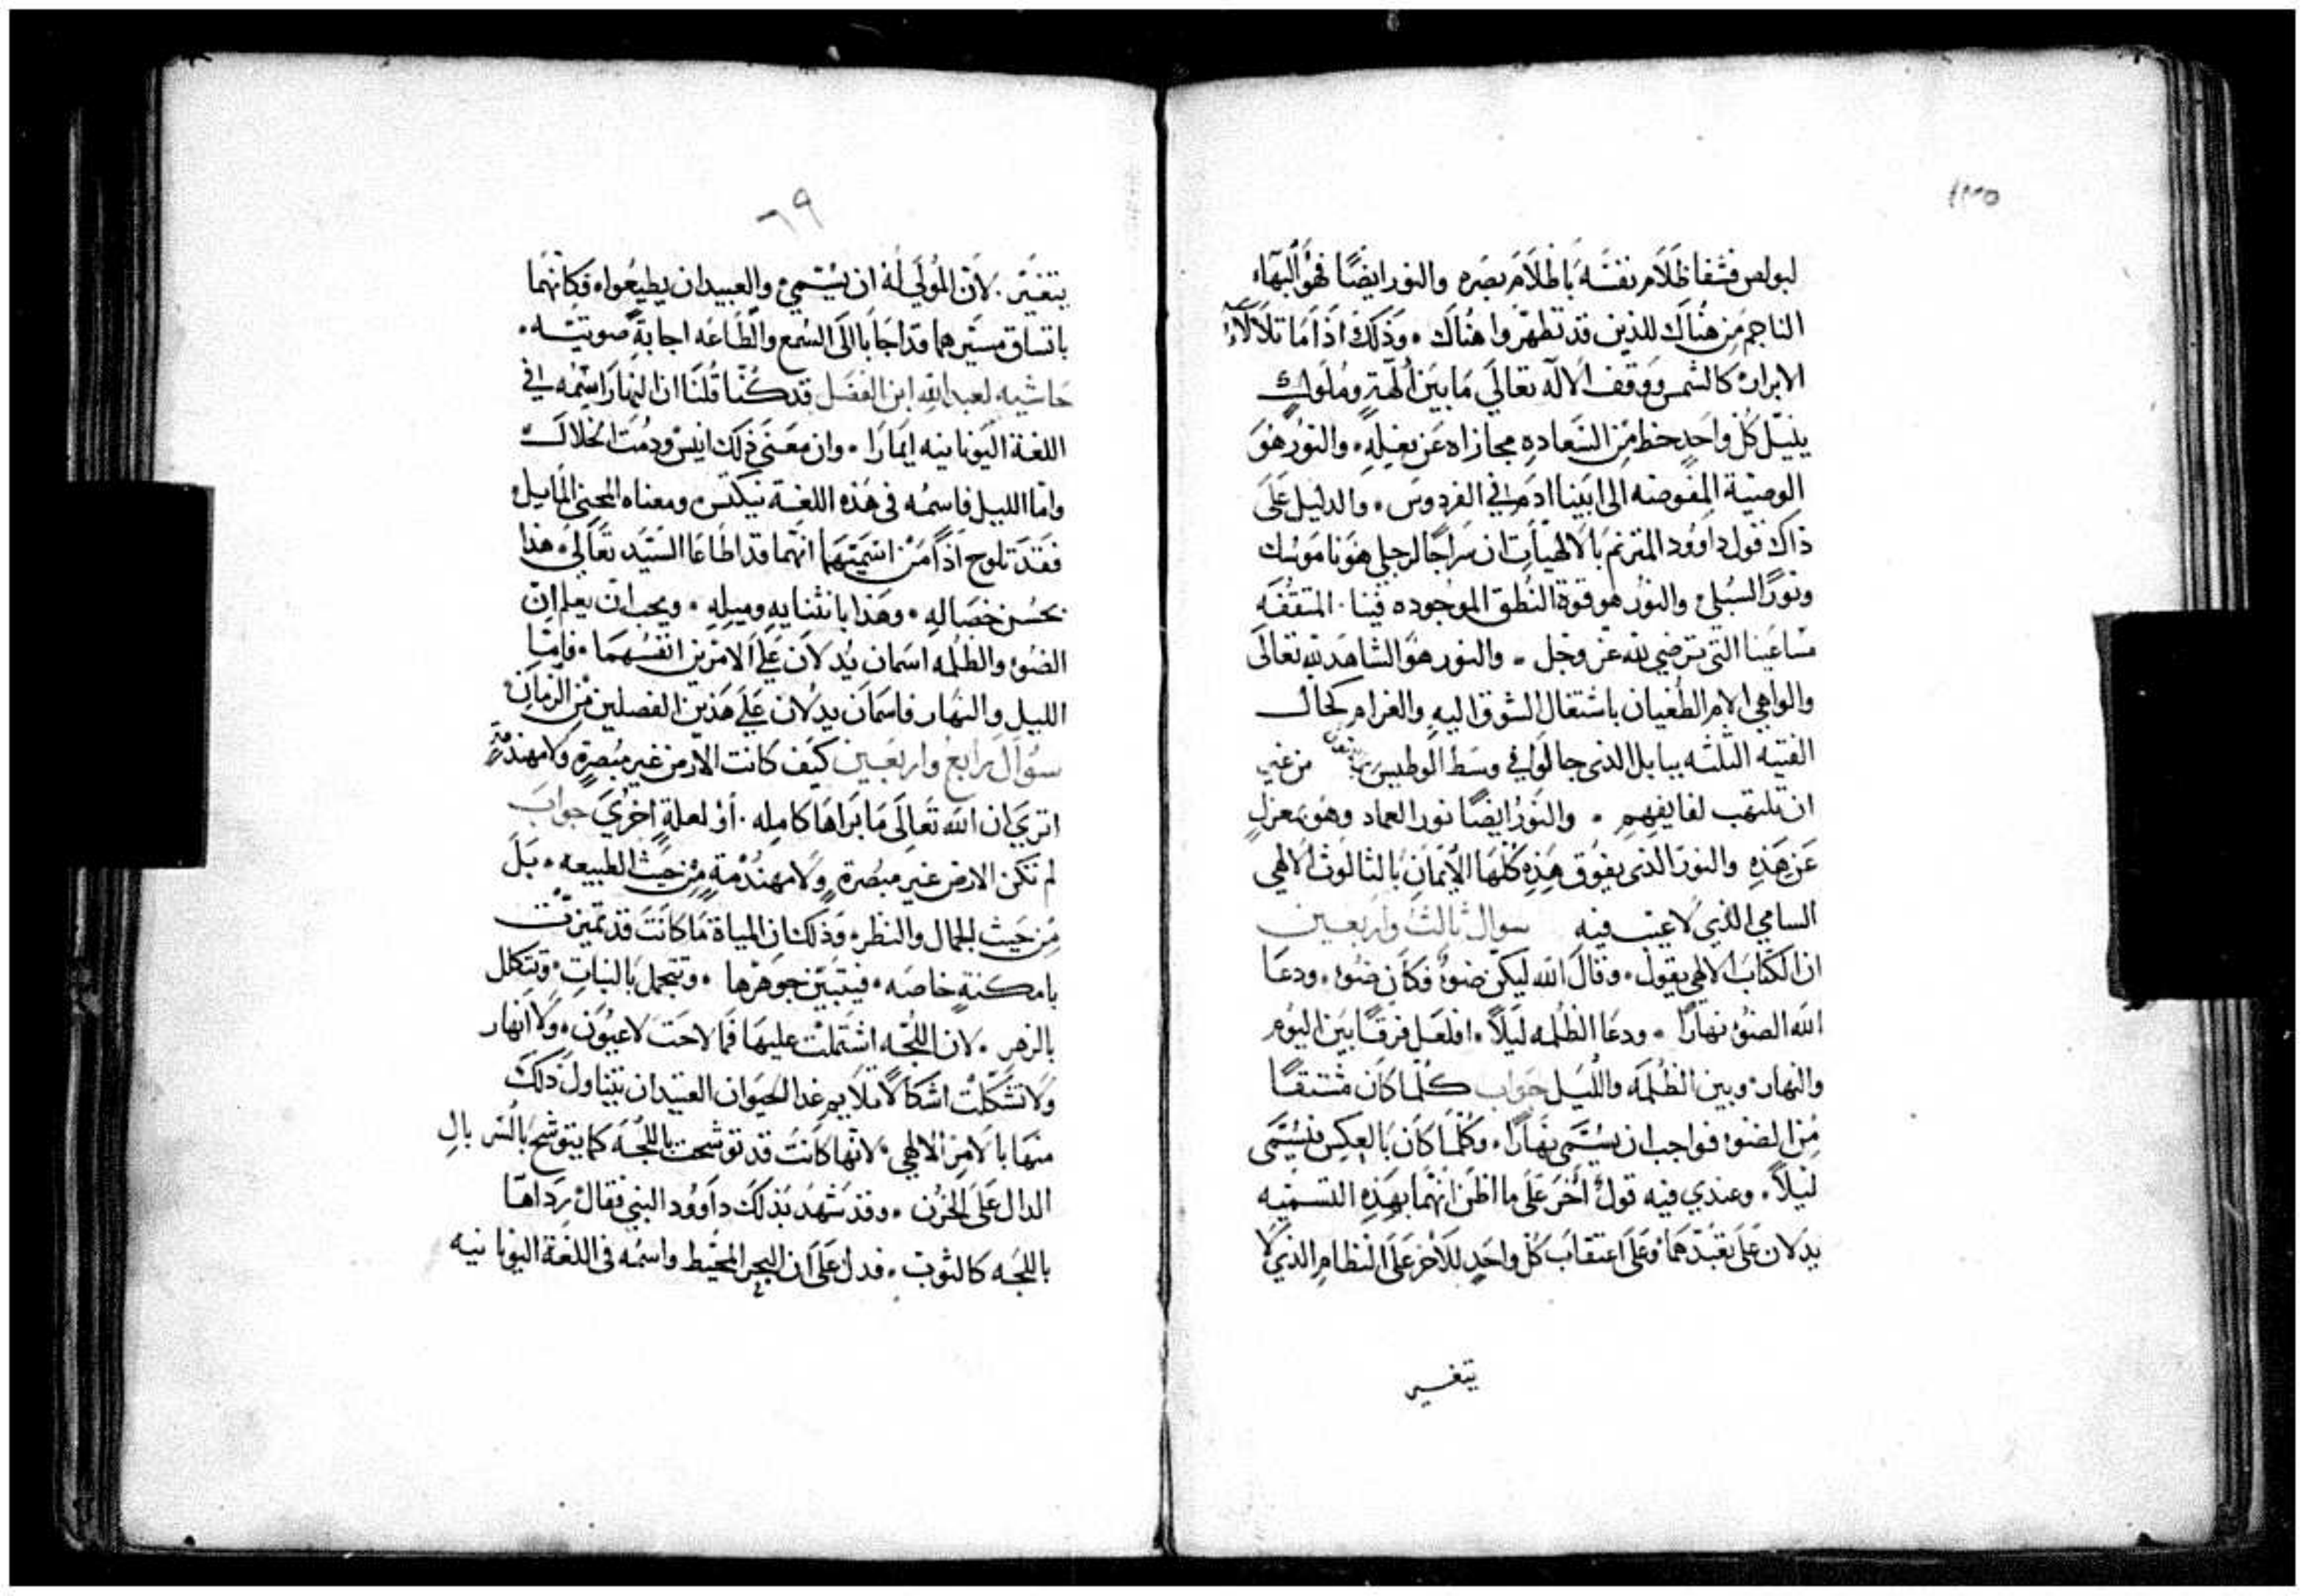 لبولص فشفا ظَلَام نفسَه بَاظلَام بصَره والنور ايضًا فهُو البَهاء
الناجم مِن هُنَاك للذين قد تطهّروا هُنَاك . وَذَلكَ اذَا مَا تلَألَأ
الابرار كالشمس وَوقف الَالَه تعَالَي مَا بيَن ألهَةٍ ومُلَوكٍ
ينيّل كُل واحَدٍ حظ مِن السَعاده مجازاه عَن فعِلهِ . والنوُر هُوَ
الوصيَة المفَوضه الي ابَينا ادَم في الفردوسَ . والدليل عَلَي
ذاك قول داوُود المترنم بَالَالهيَات ان سَراجًا لرجلي هوَ نامَوسُك
ونوُرًا لسُبلي والنوُر هوَ قوة النُطق الموجوده فيَنا . المتقفَه
مسَاعَينا التي ترضي لله عَز وجَل . والنور هوَ الشاهد لله تعَالَي
والواهي الامر الطُغيان باشتعَال الشوق اليهِ والغرام كحَال
الفتيه الثلثه ببابل الذي جالوا في وسَط الوطيس من غَير
ان تلتهب لفايفهِم . والنوَر ايضًا نور العماد وهُو بمعزلٍ
عَن هَذِهِ والنوَر الذي يفوق هَذِهِ كُلها الأيَمان بَالثالوث الَالهي
السامي الذَي لَاعَيب فيه سوال ثالث واربعين
ان الكتَاب الَالهي يقول . وقَالَ الله ليكن ضوءٌ فكَان ضوء . ودعَا
الله الضوء نهارًا . ودعَا الظُلمه ليَلًا . افلعَل فرقًا بيَن اليوُم
والنهار وبين الظُلمَه والليَل جوَاب كُلّما كَان مشتقًا
مِن الضوء فواجب ان يسُتَمي نهَارًا . وكُلّمَا كَان بَالعِكِس فيسُتَمي
ليَلًا . وعندي فيه قول أخَر عَلَي ما اظن انهُما بهَذِهِ التسميَه
يدَلان عَلَي تعَبُدهَمَا وعَلَي اعتقابَ كُل واحَدٍ للَاخر عَلَي النظَامِ الذي لَا
يتغير
٦٩
يتغيَر . لَان المُولَي لهُ ان يسُتمي والعبيد ان يطيعُوا . فكَانهُما
باتساق مسيَرهما قد اجَابا الَي السَمع والطَاعَه اجابةً صوتيَه .
حَاشيه لعبد الله ابن الفضَل قد كُنا قُلنَا ان النهَار اسمُه في
اللغة اليَونانيه ايَمارَا . وان معَنَي ذَلك انيَس ودمُت الخلَاق
وامّا الليل فاسمُه في هَذه اللغة نيكتس ومعناه المحني المَايل
فقَد تلوح اذًا مَن اسَميَتهمَا انهُما قد اطَاعَا السَيَد تعَالَي هذا
بحسُن خصَاله . وهَذا بانثنايهِ وميلهِ . ويجب ان يعلم انّ
الضوء والظُلمه اسَمان يدُلَان عَلَي الَامرَين انفُسهمَا . فامّا
الليل والنهَار فاسَمَان يدلان عَلَي هَذين الفصلين مِن الزمَان
سوَال رابع واربعَين كيَف كَانت الارض غير مبُصرةٍ ولَا مهندمةٍ
اتري ان الله تعَالَي مَا بَراهَا كاملِه . أوَ لعلةٍ اخرُي جوابَ
لم تكن الارض غير مبصُرةٍ ولَا مهندُمةٍ مِن حَيث الطبيعه . بَل
مِن حَيث الجمال والنظر . وَذَلك ان المياة مَا كَانتَ قد تميزتُ
بامكنةٍ خاصَه . فيتبَيّن جوهَرها . وتتجمل بَالنبات . وتتكلل
بالزهرِ . لَان اللجُه اشتَملت عليهَا فمَا لاحَت لَا عيوُن . ولَا انهار
ولَا تشكَلت اشكَالًا تلَايم غذا الحيَوان العتيَد ان يتناول ذلكَ
منهَا بَالَامر الَالهي . لَانهَا كَانتُ قد توشحت باللجَة كما يتوشح بَالسر بالِ
الدال عَلَي الحُزن . وقد شهدُ بذلكَ داوُود النبي فقال ردَاهَا
باللجُه كالثوب . فدل عَلَي ان البحر المحيَط واسمُه في اللغة اليونانيه